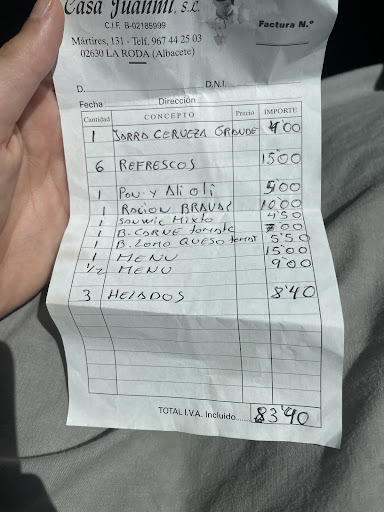 Casa Juanmi, S.L.
C.I.F. B-02185999
Mártires, 131 - Telf. 967 44 25 03
02630 LA RODA (Albacete)
Factura N.º
D. D.N.I.
Fecha Dirección
Cantidad CONCEPTO Precio IMPORTE
1 JARRA CERVEZA GRANDE 4'00
6 REFRESCOS 15'00
1 PAN Y Ali oli 5'00
1 RACION BRAVAS 10'00
1 SANWIC MIXTO 4'50
1 B. CARNE tomate 7'00
1 B. LOMO QUESO tomat 5'50
1 MENU 15'00
1/2 MENU 9'00
3 HELADOS 8'40
TOTAL I.V.A. Incluido 83'40